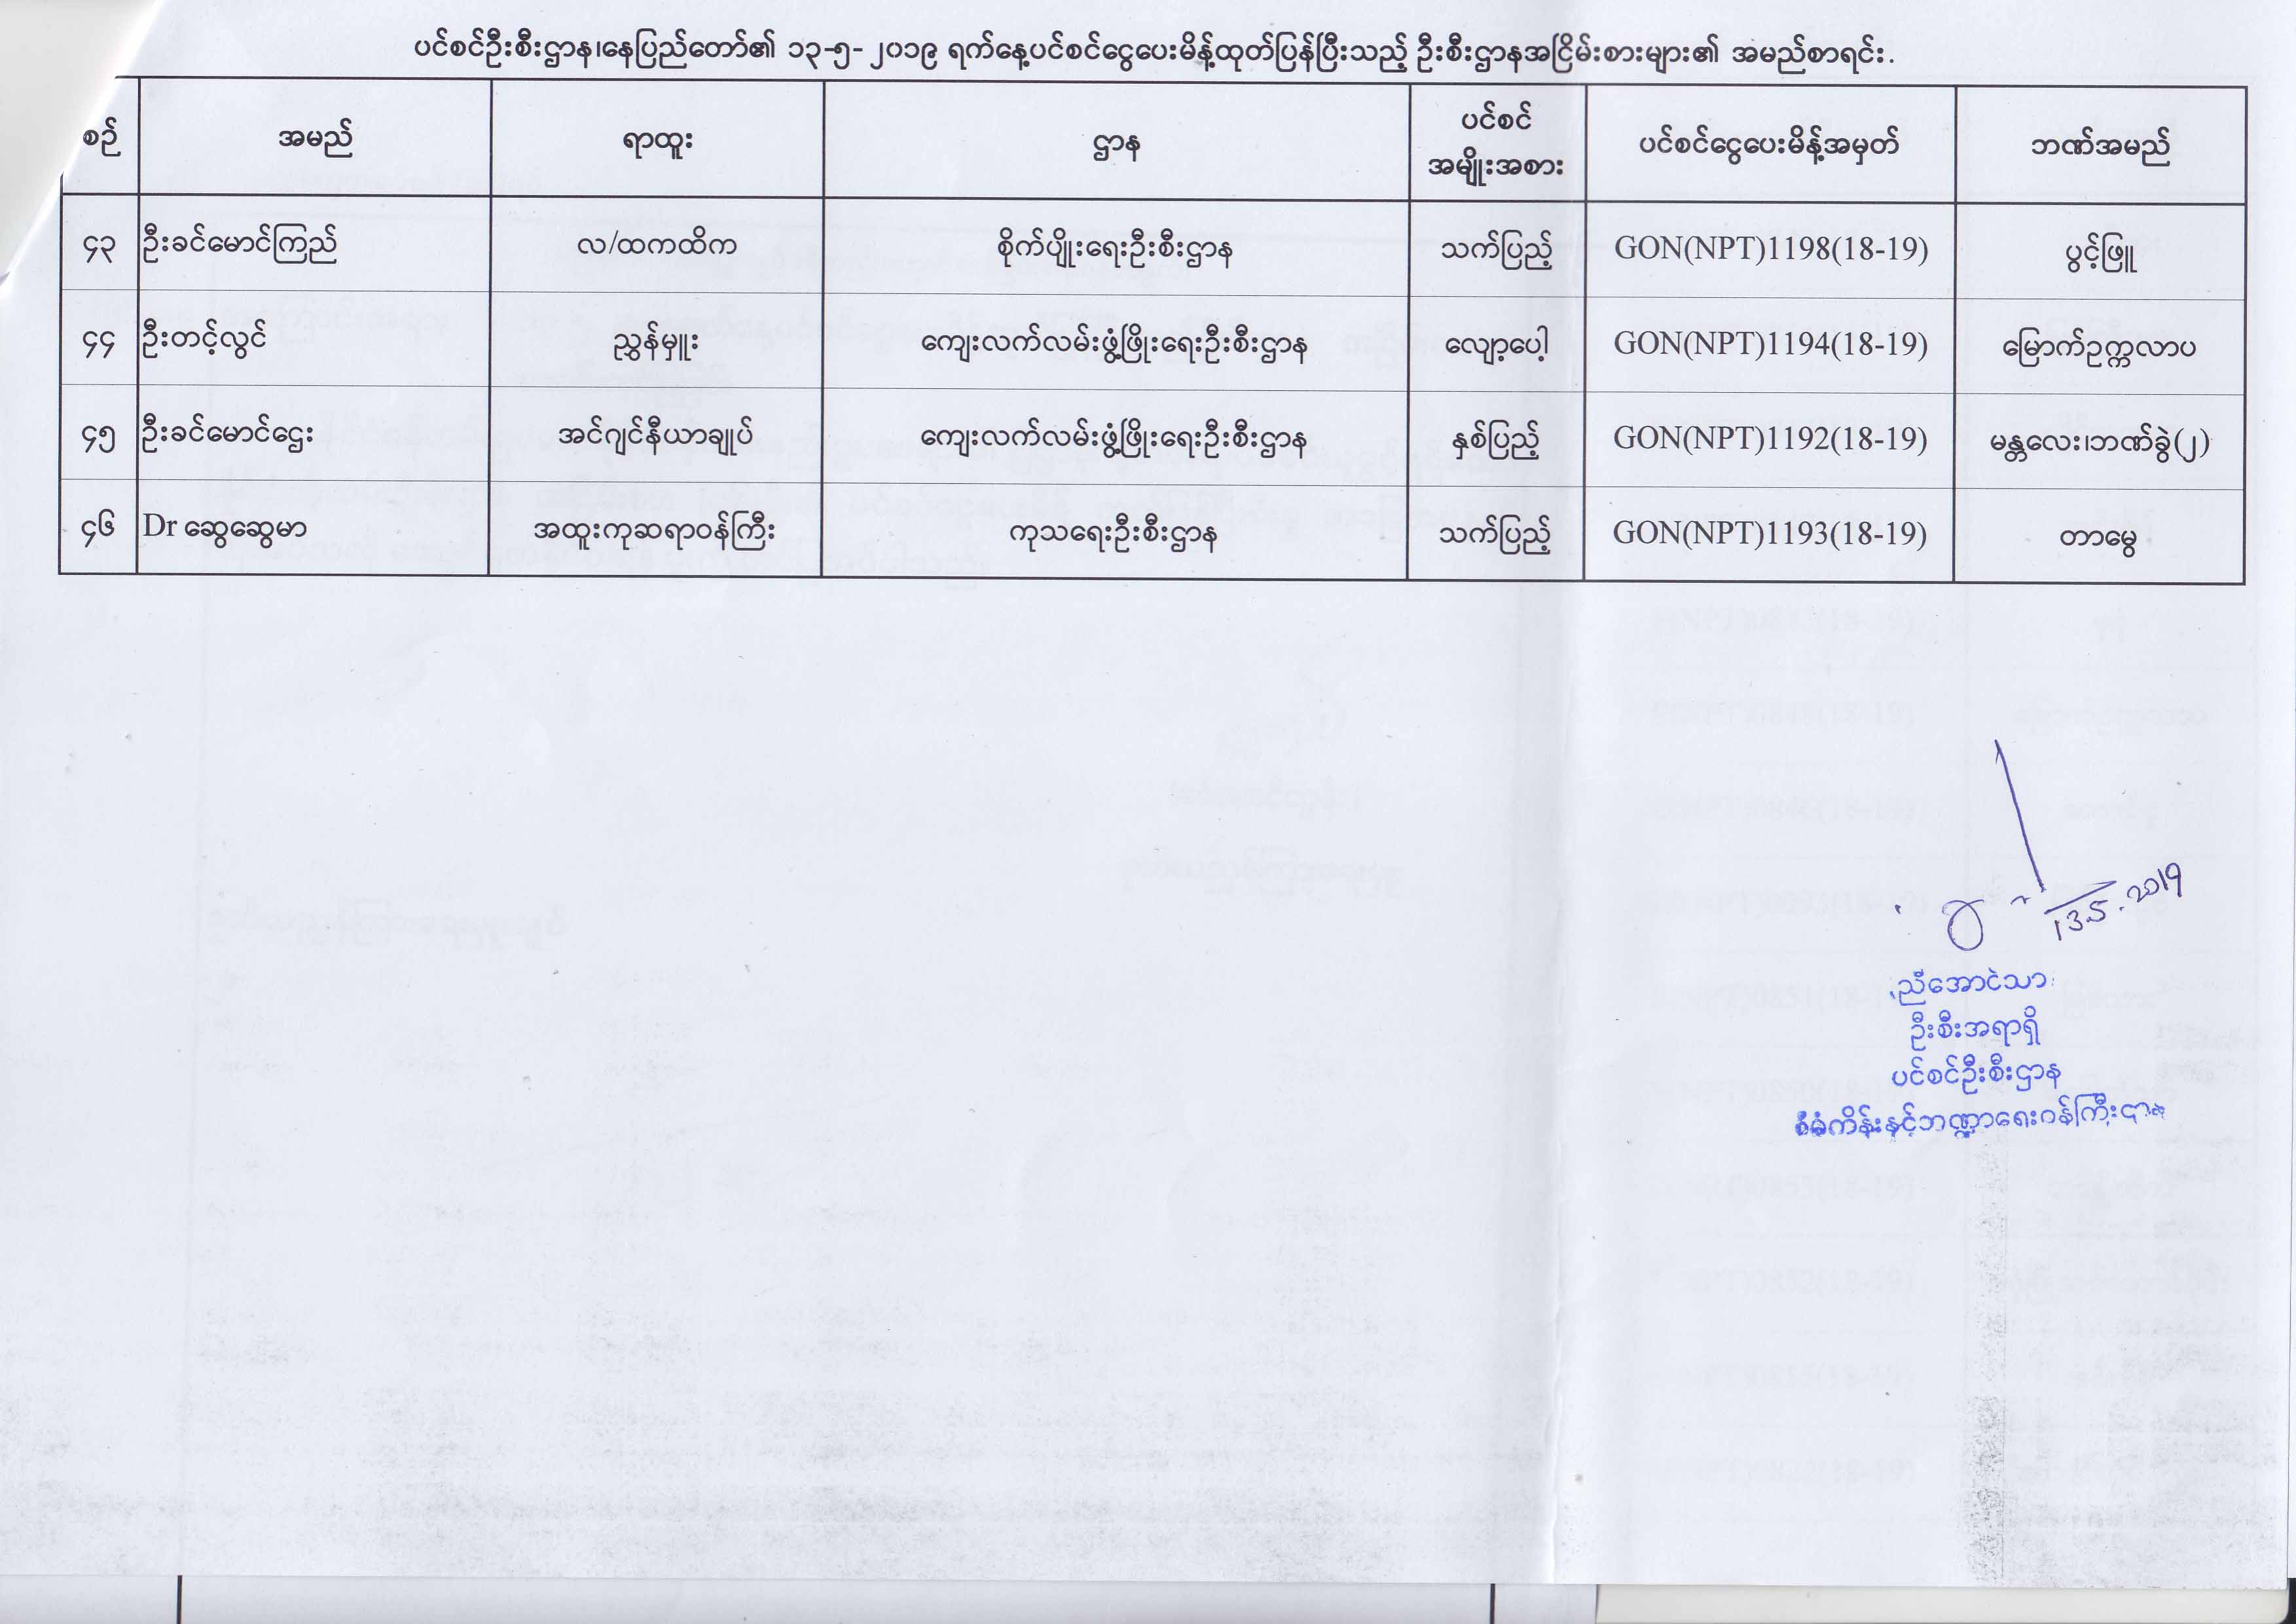 ပင်စင်ဦးစီးဌာန၊နေပြည်တော်၏ ၁၃-၅-၂၀၁၉ ရက်နေ့ပင်စင်ငွေပေးမိန့်ထုတ်ပြန်ပြီးသည့် ဦးစီးဌာနအငြိမ်းစားများ၏ အမည်စာရင်း.
စဉ် အမည် ရာထူး ဌာန ပင်စင် အမျိုးအစား ပင်စင်ငွေပေးမိန့်အမှတ် ဘဏ်အမည်
၄၃ ဦးခင်မောင်ကြည် လ/ထကထိက စိုက်ပျိုးရေးဦးစီးဌာန သက်ပြည့် GON(NPT)1198(18-19) ပွင့်ဖြူ
၄၄ ဦးတင့်လွင် ညွှန်မှူး ကျေးလက်လမ်းဖွံ့ဖြိုးရေးဦးစီးဌာန လျော့ပေါ့ GON(NPT)1194(18-19) မြောက်ဥက္ကလာပ
၄၅ ဦးခင်မောင်ဌေး အင်ဂျင်နီယာချုပ် ကျေးလက်လမ်းဖွံ့ဖြိုးရေးဦးစီးဌာန နှစ်ပြည့် GON(NPT)1192(18-19) မန္တလေး၊ဘဏ်ခွဲ(၂)
၄၆ Dr ဆွေဆွေမာ အထူးကုဆရာဝန်ကြီး ကုသရေးဦးစီးဌာန သက်ပြည့် GON(NPT)1193(18-19) တာမွေ
13.5.2019
ညီအောင်သာ
ဦးစီးအရာရှိ
ပင်စင်ဦးစီးဌာန
စီမံကိန်းနှင့်ဘဏ္ဍာရေးဝန်ကြီးဌာန